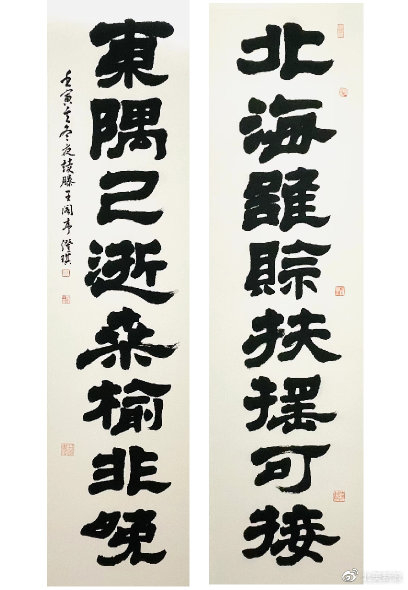 北海雖賖扶搖可接
東隅已逝桑榆非晚
壬寅之冬夜讀滕王閣序